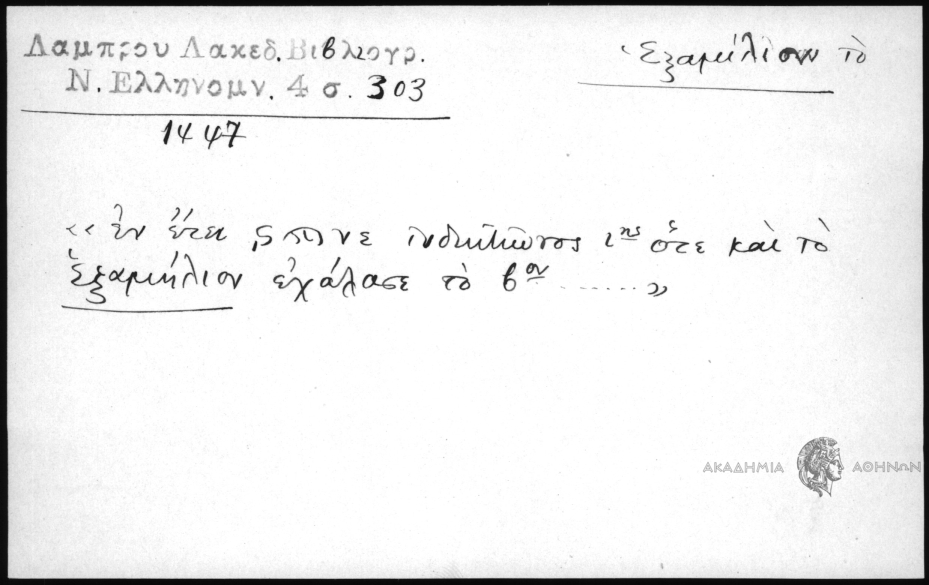 Λαμπρου Λακεδ. Βιβλιογρ.
Ν. Ελληνομν. 4 σ. 303
Ἑξαμίλιον τὸ
1447
«ἐν ἔτει ϛϡνε ἰνδικτιῶνος ιης ὅτε καὶ τὸ
Ἑξαμήλιον ἐχάλασε τὸ βον ......»
ΑΚΑΔΗΜΙΑ ΑΘΗΝΩΝ